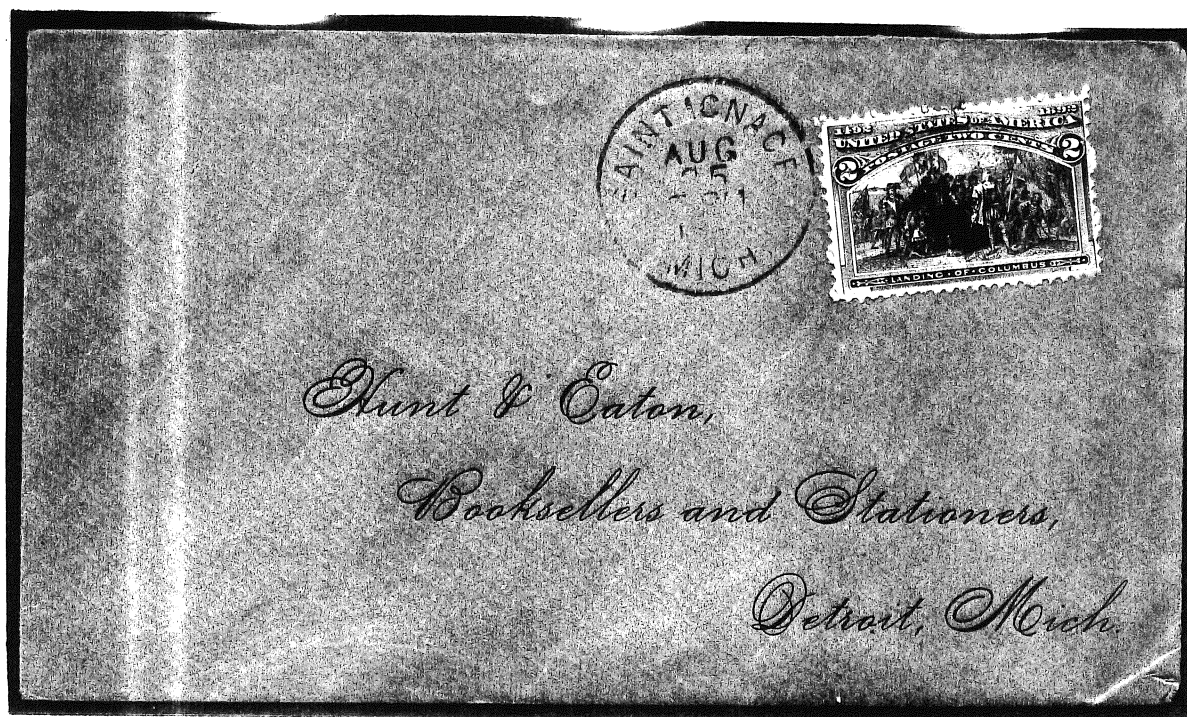 SAINT IGNACE
AUG
25
MICH
1492 1892
UNITED STATES OF AMERICA
POSTAGE TWO CENTS
2 2
LANDING OF COLUMBUS
Hunt & Eaton,
Booksellers and Stationers,
Detroit, Mich.